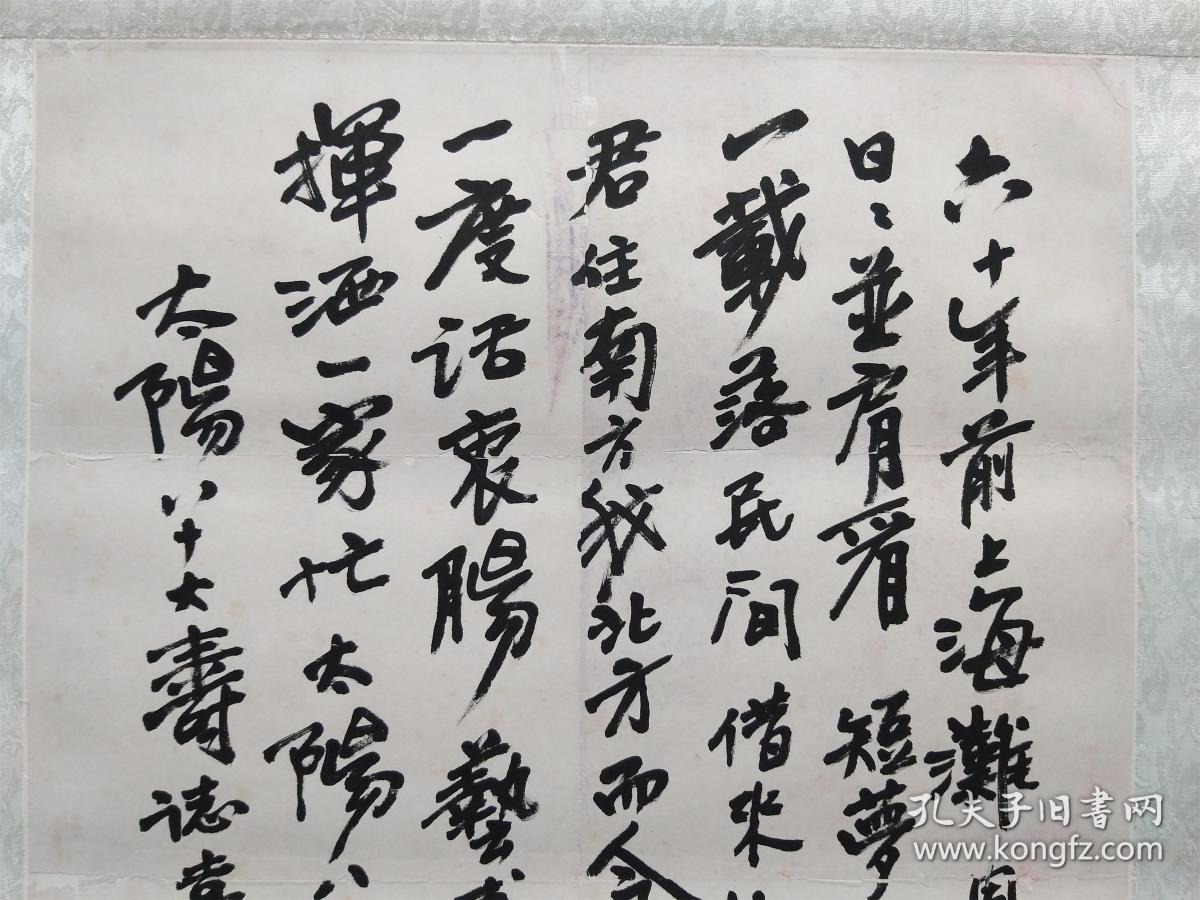 六十年前上海灘
日〻並肩看 短夢
一載落民間 借來
君住南方我北方 而今
一度話衷腸 藝
揮洒一家忙 太陽八
太陽八十大壽誌
孔夫子旧书网
www.kongfz.com